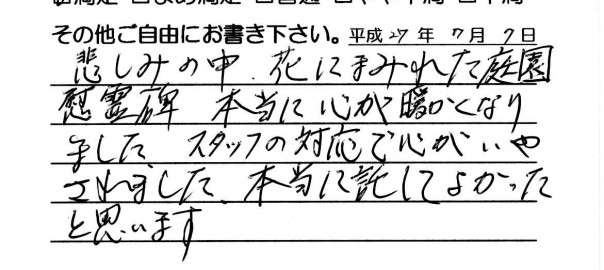 その他ご自由にお書き下さい。平成27年 7月 7日
悲しみの中、花にまみれた庭園
慰霊碑 本当に心が暖かくなり
ました、スタッフの対応で心がいや
されました、本当に託してよかった
と思います